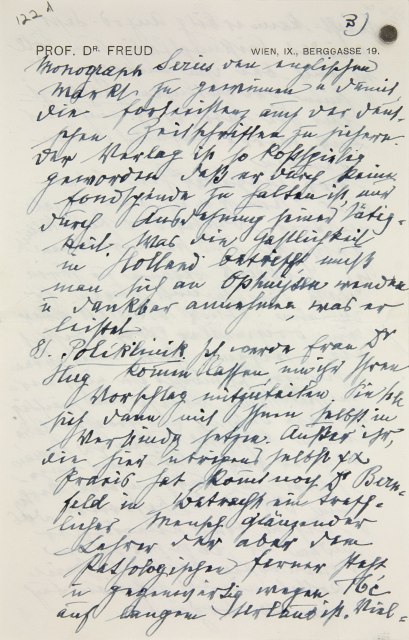 122 d
3)
PROF. DR. FREUD WIEN, IX., BERGGASSE 19.
Monograph Series den englischen
Markt zu gewinnen u damit
die Fortexistenz auch der deut-
schen Zeitschriften zu sichern.
Der Verlag ist so kostspielig
geworden, daß er durch keine
Fondspende zu halten ist, nur
durch Ausdehnung seiner Tätig-
keit. Was die Gastlichkeit
in Holland betrifft muß
man sich an Ophuijsen wenden
u dankbar annehmen, was er
leistet.
Poliklinik Ich werde Frau Dr
Hug kommen lassen um ihr Ihren
Vorschlag mitzuteilen. Sie soll
sich dann mit Ihnen selbst in
Verbindg setzen. Außer ihr,
die hier übrigens selbst
Praxis hat, käme noch Dr Bern-
feld in Betracht ein treff-
licher Mensch, glänzender
Lehrer der aber dem
Pathologischen ferner steht
u gegenwärtig wegen Tbc
auf langem Urlaub ist. Viel-